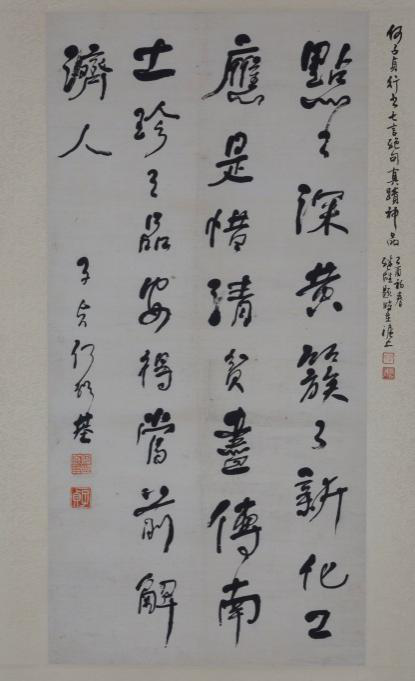 何子貞行書七言絕句真蹟神品
乙酉初春
點々深黃簇々新化工
應是惜清貧畫傳南
士珍々品安得當前解
濟人
子貞何紹基